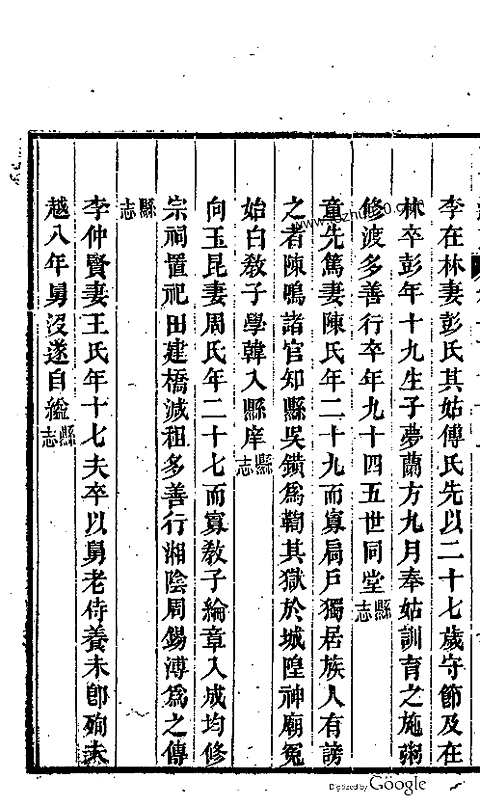 李在林妻彭氏其姑傅氏先以二十七歲守節及在
林卒彭年十九生子夢蘭方九月奉姑訓育之施粥
修渡多善行卒年九十四五世同堂縣志
童先篤妻陳氏年二十九而寡扃戸獨居族人有謗
之者陳鳴諸官知縣吳鐄爲鞫其獄於城隍神廟冤
始白敎子學韓入縣庠縣志
向玉昆妻周氏年二十七而寡敎子綸章入成均修
宗祠置祀田建橋減租多善行湘陰周錫溥爲之傳
縣志
李仲賢妻王氏年十七夫卒以舅老侍養未卽殉未
越八年舅沒遂自縊縣志
Digitized by Google